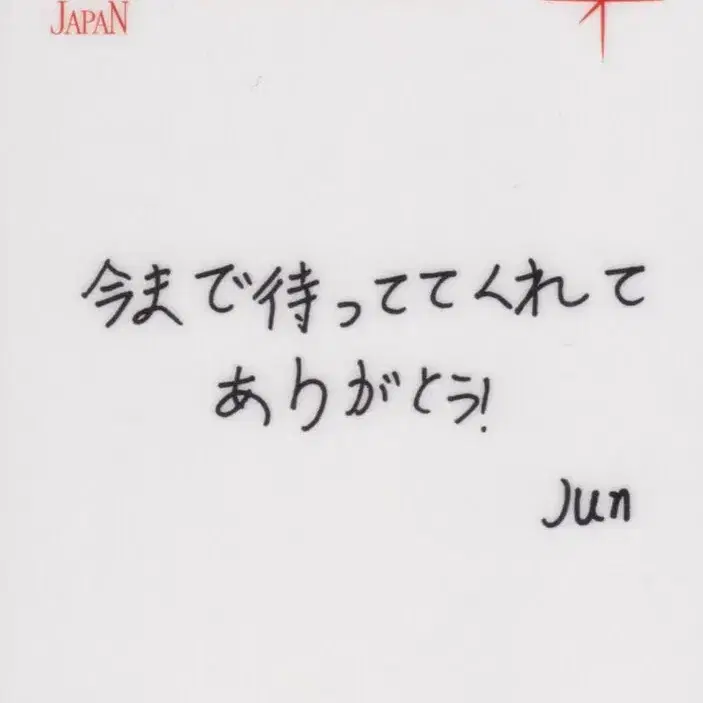 JAPAN
今まで待っててくれて
ありがとう!
Jun